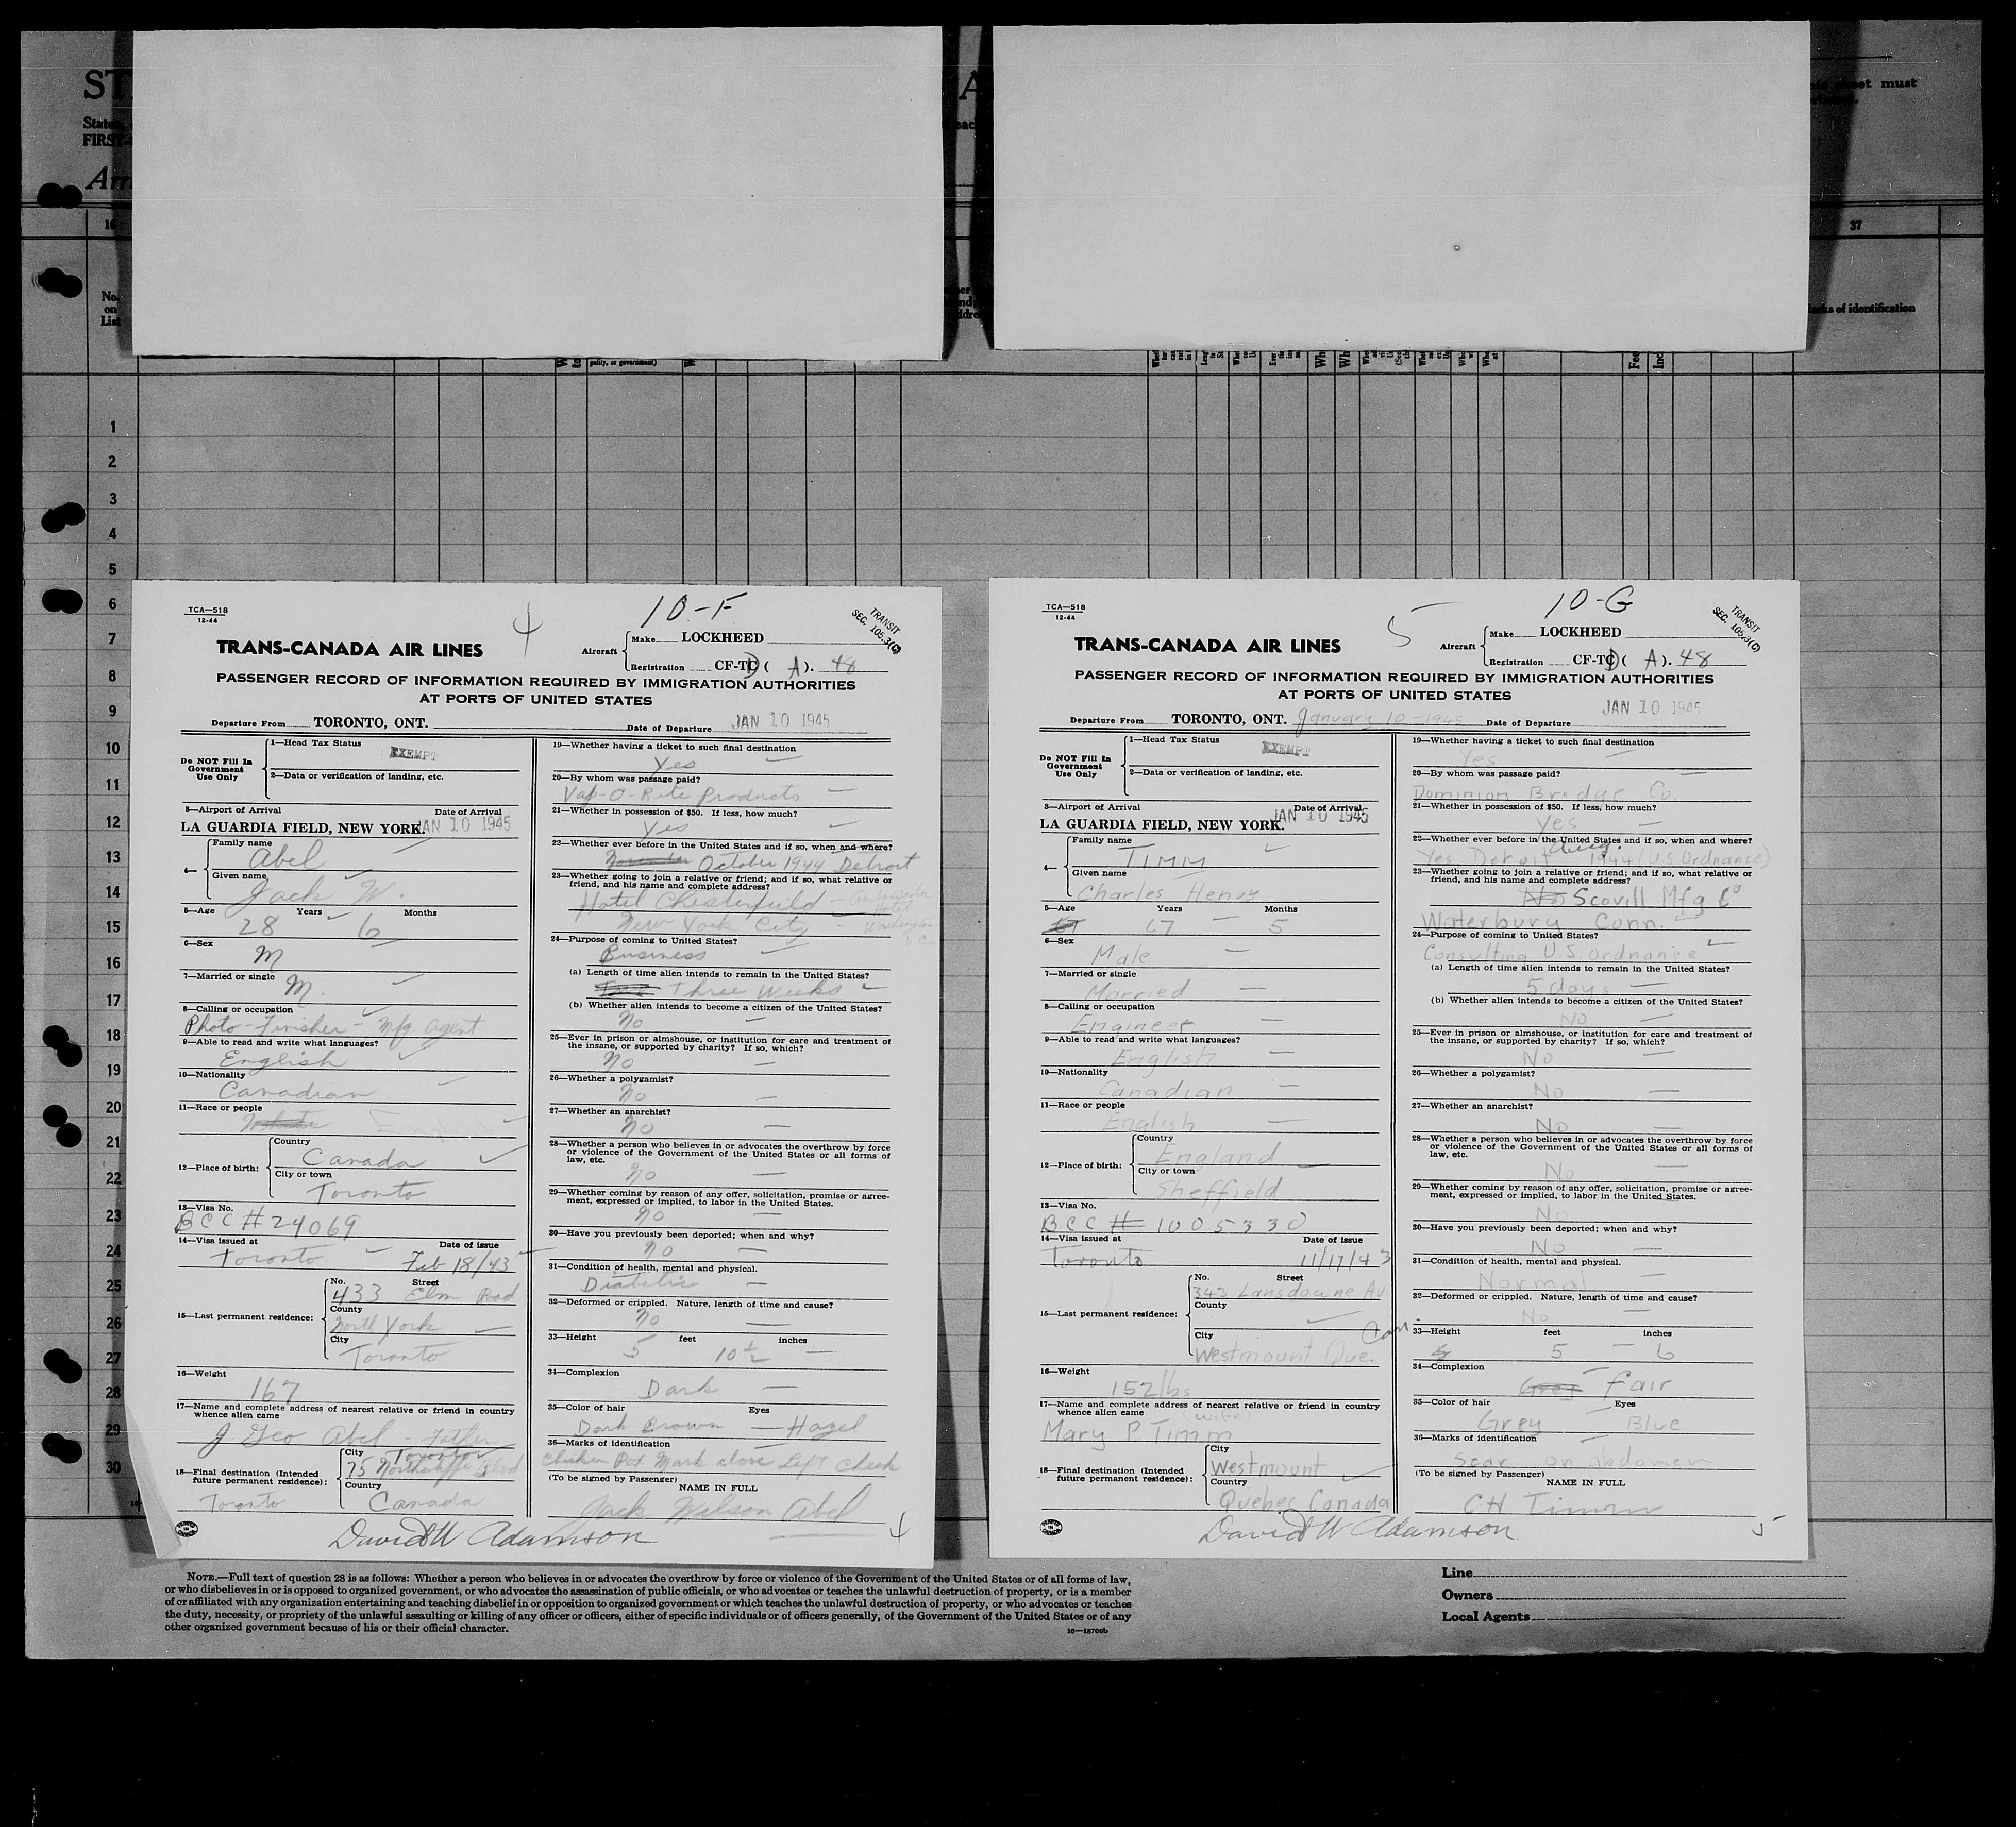 ST
A
State
FIRST-
Arr
eet must
16
37
No.
on
List
arks of identification
pality, or government)
1
2
3
4
5
6
7
8
9
10
11
12
13
14
15
16
17
18
19
20
21
22
23
24
25
26
27
28
29
30
TCA—518
12-44
4
10-F
TRANSIT
SEC. 105.3(C)
TRANS-CANADA AIR LINES
Aircraft
Make LOCKHEED
Registration CF-TCD ( A ). 48
PASSENGER RECORD OF INFORMATION REQUIRED BY IMMIGRATION AUTHORITIES
AT PORTS OF UNITED STATES
Departure From TORONTO, ONT. Date of Departure JAN 10 1945
Do NOT Fill In
Government
Use Only
1—Head Tax Status EXEMPT
2—Data or verification of landing, etc.
3—Airport of Arrival Date of Arrival
LA GUARDIA FIELD, NEW YORK. JAN 10 1945
4—
Family name
Abel
Given name
Jack W.
5—Age Years Months
28 6
6—Sex
M
7—Married or single
M.
8—Calling or occupation
Photo-Finisher - Mfg Agent
9—Able to read and write what languages?
English
10—Nationality
Canadian
11—Race or people
White
12—Place of birth:
Country
Canada
City or town
Toronto
13—Visa No.
BCC # 24069
14—Visa issued at Date of issue
Toronto Feb 18/43
15—Last permanent residence:
No. Street
433 Elm Road
County
North York
City
Toronto
16—Weight
167
17—Name and complete address of nearest relative or friend in country
whence alien came
J Geo Abel - Father
18—Final destination (Intended
future permanent residence):
City Toronto
75 Northcliffe Blvd
Country
Toronto Canada
19—Whether having a ticket to such final destination
Yes
20—By whom was passage paid?
Vap-O-Rite Products
21—Whether in possession of $50. If less, how much?
Yes
22—Whether ever before in the United States and if so, when and where?
November October 1944 Detroit
23—Whether going to join a relative or friend; and if so, what relative or
friend, and his name and complete address?
Hotel Chesterfield - Ambassador Hotel
New York City - Washington D C
24—Purpose of coming to United States?
Business
(a) Length of time alien intends to remain in the United States?
Three Weeks
(b) Whether alien intends to become a citizen of the United States?
No
25—Ever in prison or almshouse, or institution for care and treatment of
the insane, or supported by charity? If so, which?
No
26—Whether a polygamist?
No
27—Whether an anarchist?
No
28—Whether a person who believes in or advocates the overthrow by force
or violence of the Government of the United States or all forms of
law, etc.
No
29—Whether coming by reason of any offer, solicitation, promise or agree-
ment, expressed or implied, to labor in the United States.
No
30—Have you previously been deported; when and why?
No
31—Condition of health, mental and physical.
Diabetic
32—Deformed or crippled. Nature, length of time and cause?
No
33—Height feet inches
5 10 1/2
34—Complexion
Dark
35—Color of hair Eyes
Dark Brown Hazel
36—Marks of identification
Chicken Pox Mark above Left Cheek
(To be signed by Passenger)
NAME IN FULL
Jack Wilson Abel
David W Adamson
4
TCA—518
12-44
5
10-G
TRANSIT
SEC. 105.3(C)
TRANS-CANADA AIR LINES
Aircraft
Make LOCKHEED
Registration CF-TCD ( A ). 48
PASSENGER RECORD OF INFORMATION REQUIRED BY IMMIGRATION AUTHORITIES
AT PORTS OF UNITED STATES
Departure From TORONTO, ONT. January 10-1945 Date of Departure JAN 10 1945
Do NOT Fill In
Government
Use Only
1—Head Tax Status EXEMPT
2—Data or verification of landing, etc.
3—Airport of Arrival Date of Arrival
LA GUARDIA FIELD, NEW YORK. JAN 10 1945
4—
Family name
Timm
Given name
Charles Henry
5—Age Years Months
67 5
6—Sex
Male
7—Married or single
Married
8—Calling or occupation
Engineer
9—Able to read and write what languages?
English
10—Nationality
Canadian
11—Race or people
English
12—Place of birth:
Country
England
City or town
Sheffield
13—Visa No.
BCC # 1005330
14—Visa issued at Date of issue
Toronto 11/17/43
15—Last permanent residence:
No. Street
343 Lansdowne Av
County
City Can.
Westmount Que.
16—Weight
152 lbs
17—Name and complete address of nearest relative or friend in country
whence alien came (Wife)
Mary P Timm
18—Final destination (Intended
future permanent residence):
City
Westmount
Country
Quebec Canada
19—Whether having a ticket to such final destination
Yes
20—By whom was passage paid?
Dominion Bridge Co.
21—Whether in possession of $50. If less, how much?
Yes
22—Whether ever before in the United States and if so, when and where?
Yes Detroit Aug. 1944 (U.S. Ordnance)
23—Whether going to join a relative or friend; and if so, what relative or
friend, and his name and complete address?
No Scovill Mfg Co
Waterbury Conn.
24—Purpose of coming to United States?
Consulting U.S. Ordnance
(a) Length of time alien intends to remain in the United States?
5 days
(b) Whether alien intends to become a citizen of the United States?
No
25—Ever in prison or almshouse, or institution for care and treatment of
the insane, or supported by charity? If so, which?
No
26—Whether a polygamist?
No
27—Whether an anarchist?
No
28—Whether a person who believes in or advocates the overthrow by force
or violence of the Government of the United States or all forms of
law, etc.
No
29—Whether coming by reason of any offer, solicitation, promise or agree-
ment, expressed or implied, to labor in the United States.
No
30—Have you previously been deported; when and why?
No
31—Condition of health, mental and physical.
Normal
32—Deformed or crippled. Nature, length of time and cause?
No
33—Height feet inches
5 6
34—Complexion
Grey fair
35—Color of hair Eyes
Grey Blue
36—Marks of identification
Scar on abdomen
(To be signed by Passenger)
NAME IN FULL
C H Timm
David W Adamson
5
NOTE.—Full text of question 28 is as follows: Whether a person who believes in or advocates the overthrow by force or violence of the Government of the United States or of all forms of law,
or who disbelieves in or is opposed to organized government, or who advocates the assassination of public officials, or who advocates or teaches the unlawful destruction of property, or is a member
of or affiliated with any organization entertaining and teaching disbelief in or opposition to organized government or which teaches the unlawful destruction of property, or who advocates or teaches
the duty, necessity, or propriety of the unlawful assaulting or killing of any officer or officers, either of specific individuals or of officers generally, of the Government of the United States or of any
other organized government because of his or their official character.
16—18709b
Line
Owners
Local Agents